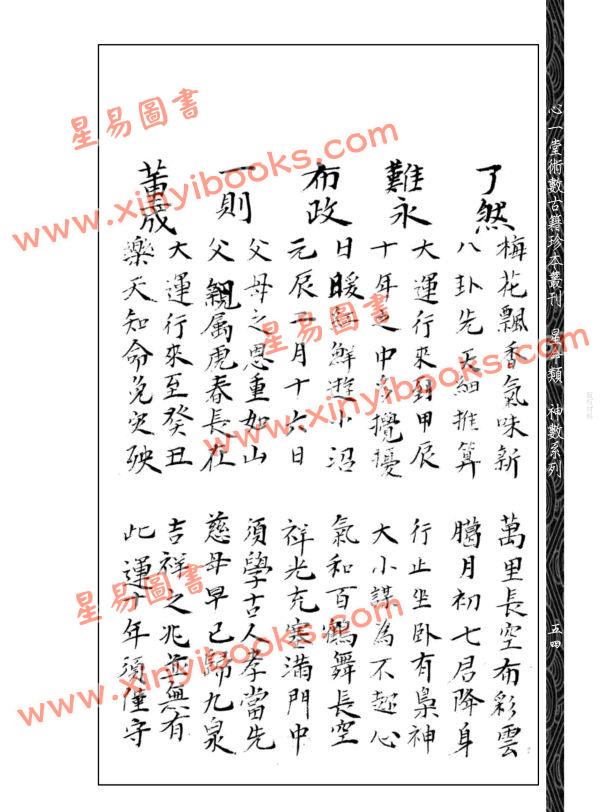 心一堂術數古籍珍本叢刊 星命類 神數系列
五四
了然
梅花飄香氣味新 萬里長空布彩雲
八卦先天細推算 臘月初七君降身
難永
大運行來到甲辰 行止坐卧有梟神
十年之中多攪擾 大小謀為不趁心
布政
日暖 鮮遊小沼 氣和百鶴舞長空
元辰 月十六日 祥光充塞滿門中
一則
父母之恩重如山 須學古人孝當先
父親属虎春長在 慈母早已歸九泉
萬成
大運行來至癸丑 吉祥之兆並無有
樂天知命免災殃 此運十年須謹守
星易圖書
www.xinyibooks.com
星易圖書
www.xinyibooks.com
星易圖書
www.xinyibooks.com